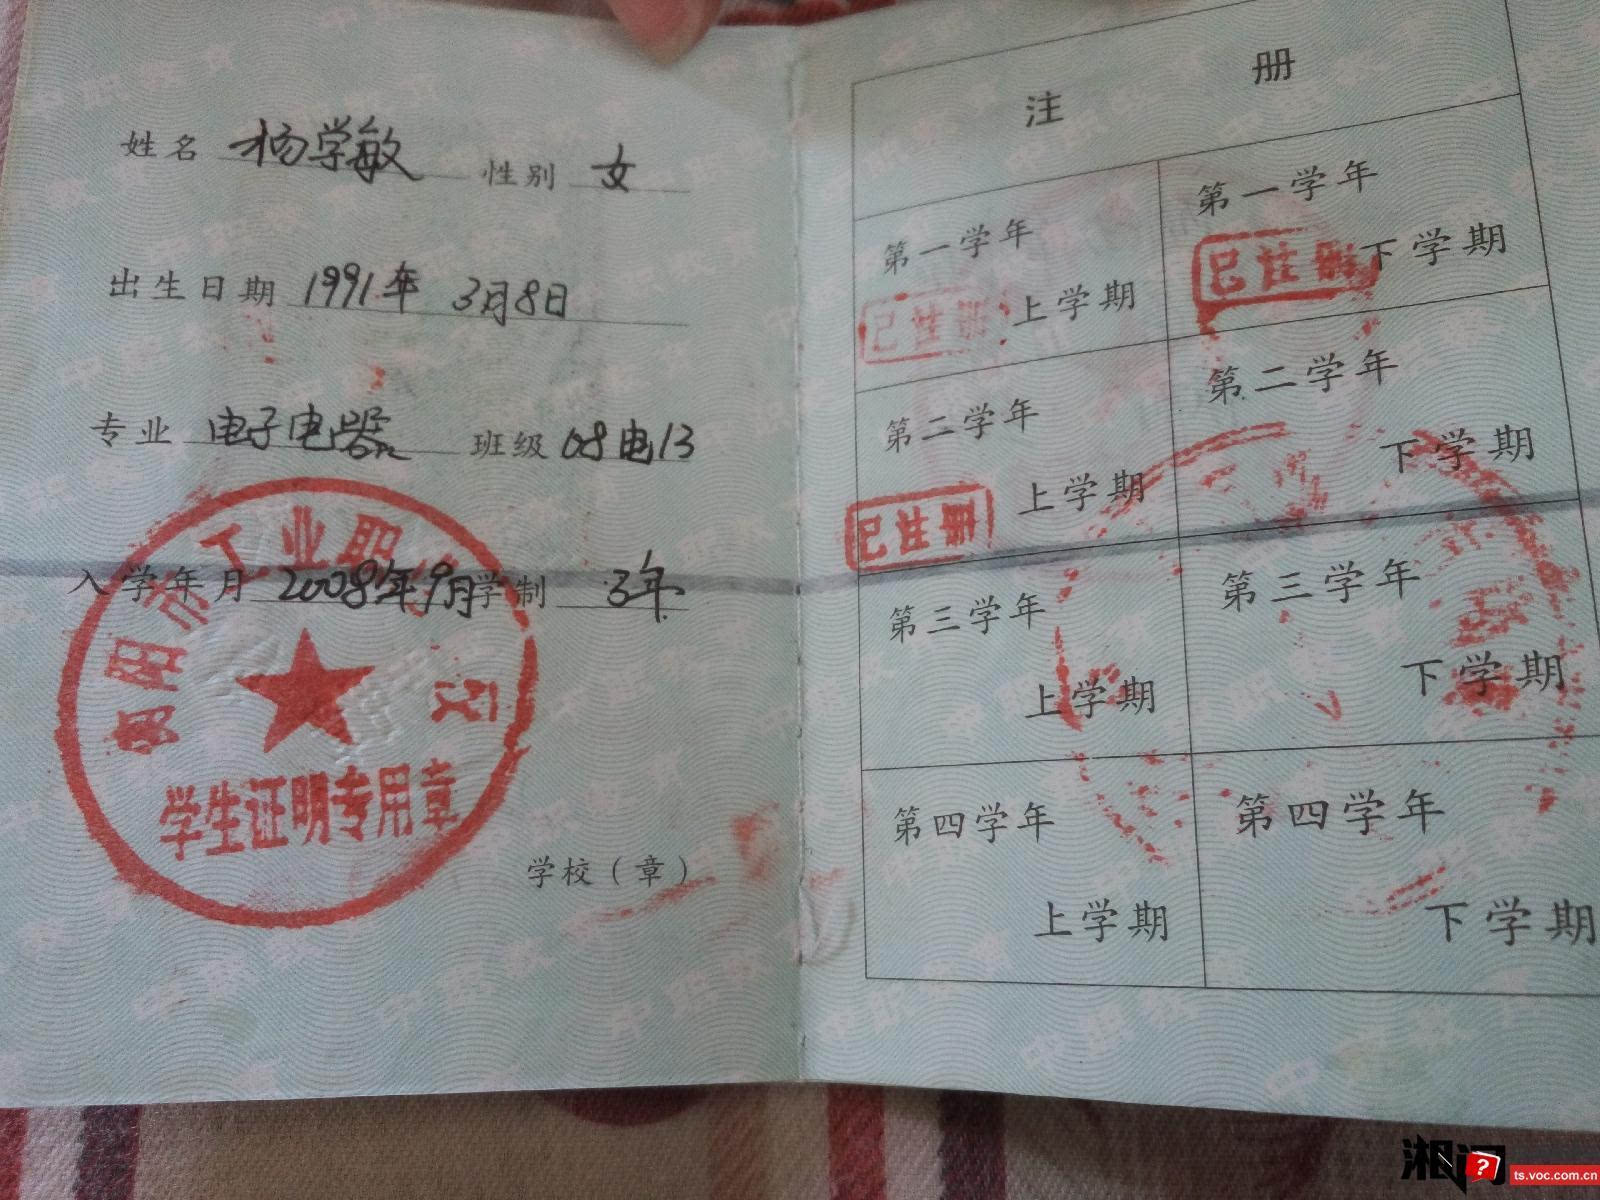 姓名 杨学敏 性别 女
出生日期 1991年 3月8日
专业 电子电器 班级 08电13
入学年月 2008年9月 学制 3年
阳市工业职
学生证明专用章
学校（章）
注 册
第一学年 上学期
已注册
第一学年 下学期
已注册
第二学年 上学期
已注册
第二学年 下学期
第三学年 上学期
第三学年 下学期
第四学年 上学期
第四学年 下学期
湘问
?
ts.voc.com.cn